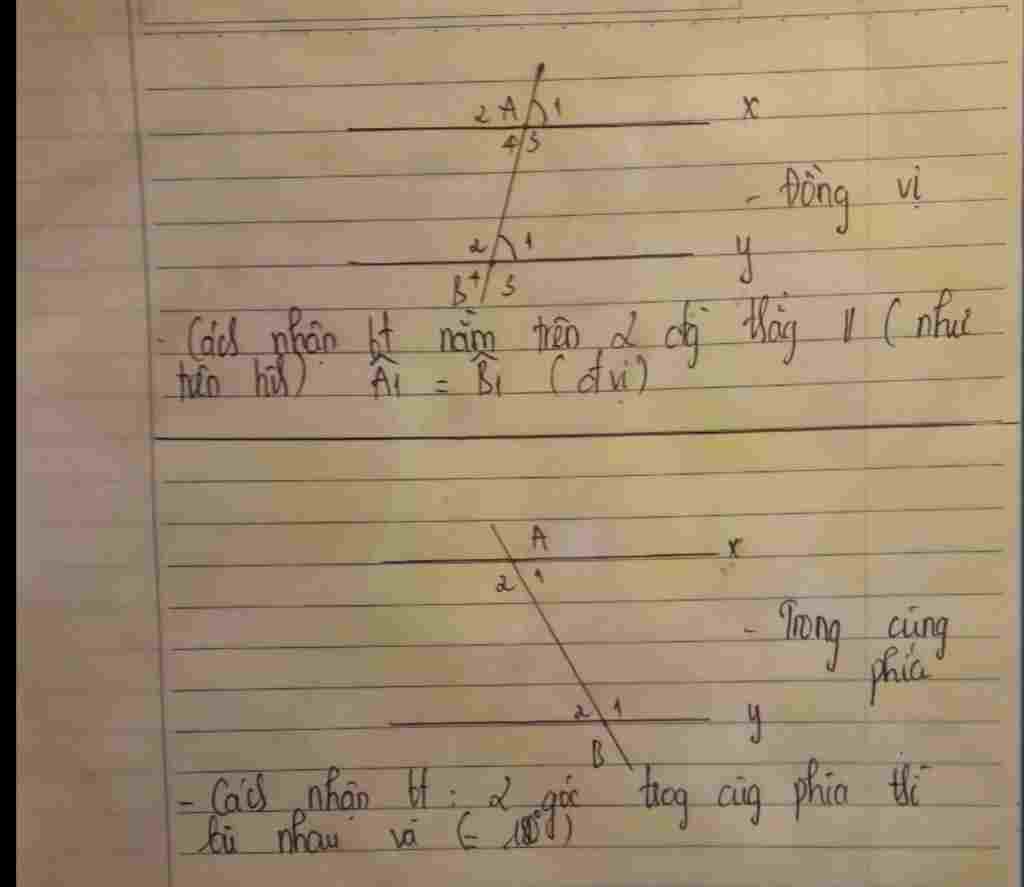 2 A 1
x
4 3
- Đồng vị
2 1
y
B 4 3
- Cách nhận bt nằm trên 2 đg thẳg // ( như
trên hìh ) Â1 = B̂1 ( đ vị )
A
x
2 1
- Trong cùng
phía
2 1
y
B
- Cách nhận bt : 2 góc trog cùg phía thì
bù nhau và ( = 180° )